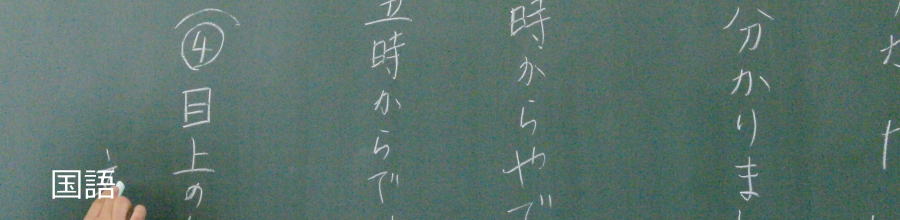 分かりま
時からやで
時からで
④目上の
国語